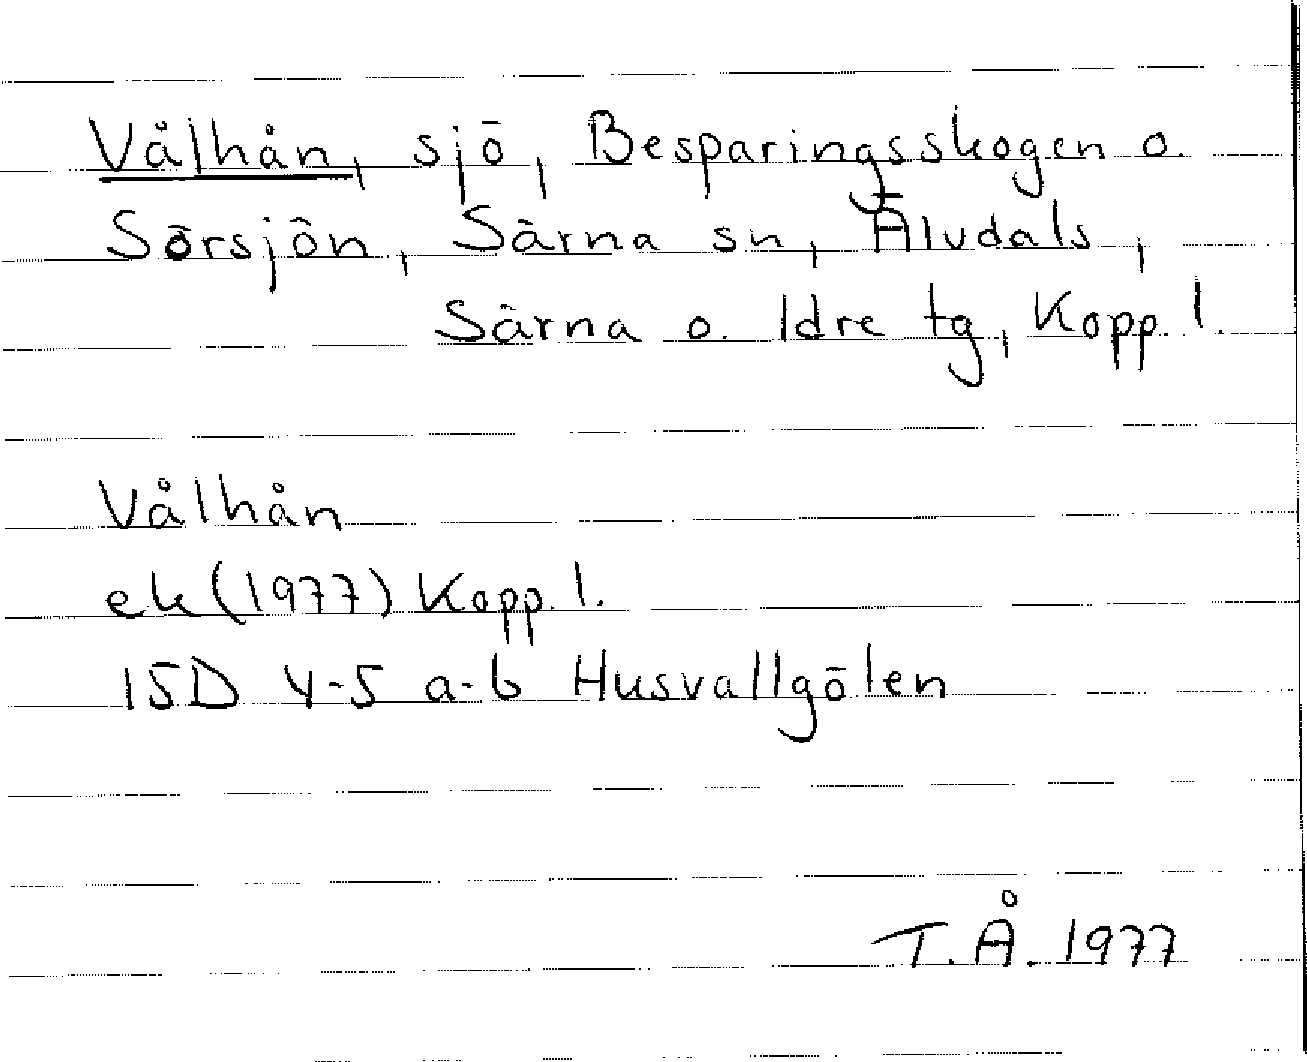 Vålhån, sjö, Besparingsskogen o.
Sörsjön, Särna sn, Älvdals,
Särna o. Idre tg, Kopp. l.
Vålhån
ek (1977) Kopp. l.
15D 4-5 a-b Husvallgölen
T.Å. 1977